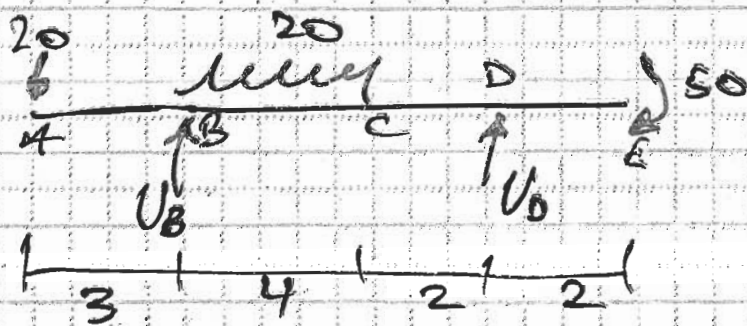 20 20
D 50
A B C E
U_B U_D
3 4 2 2